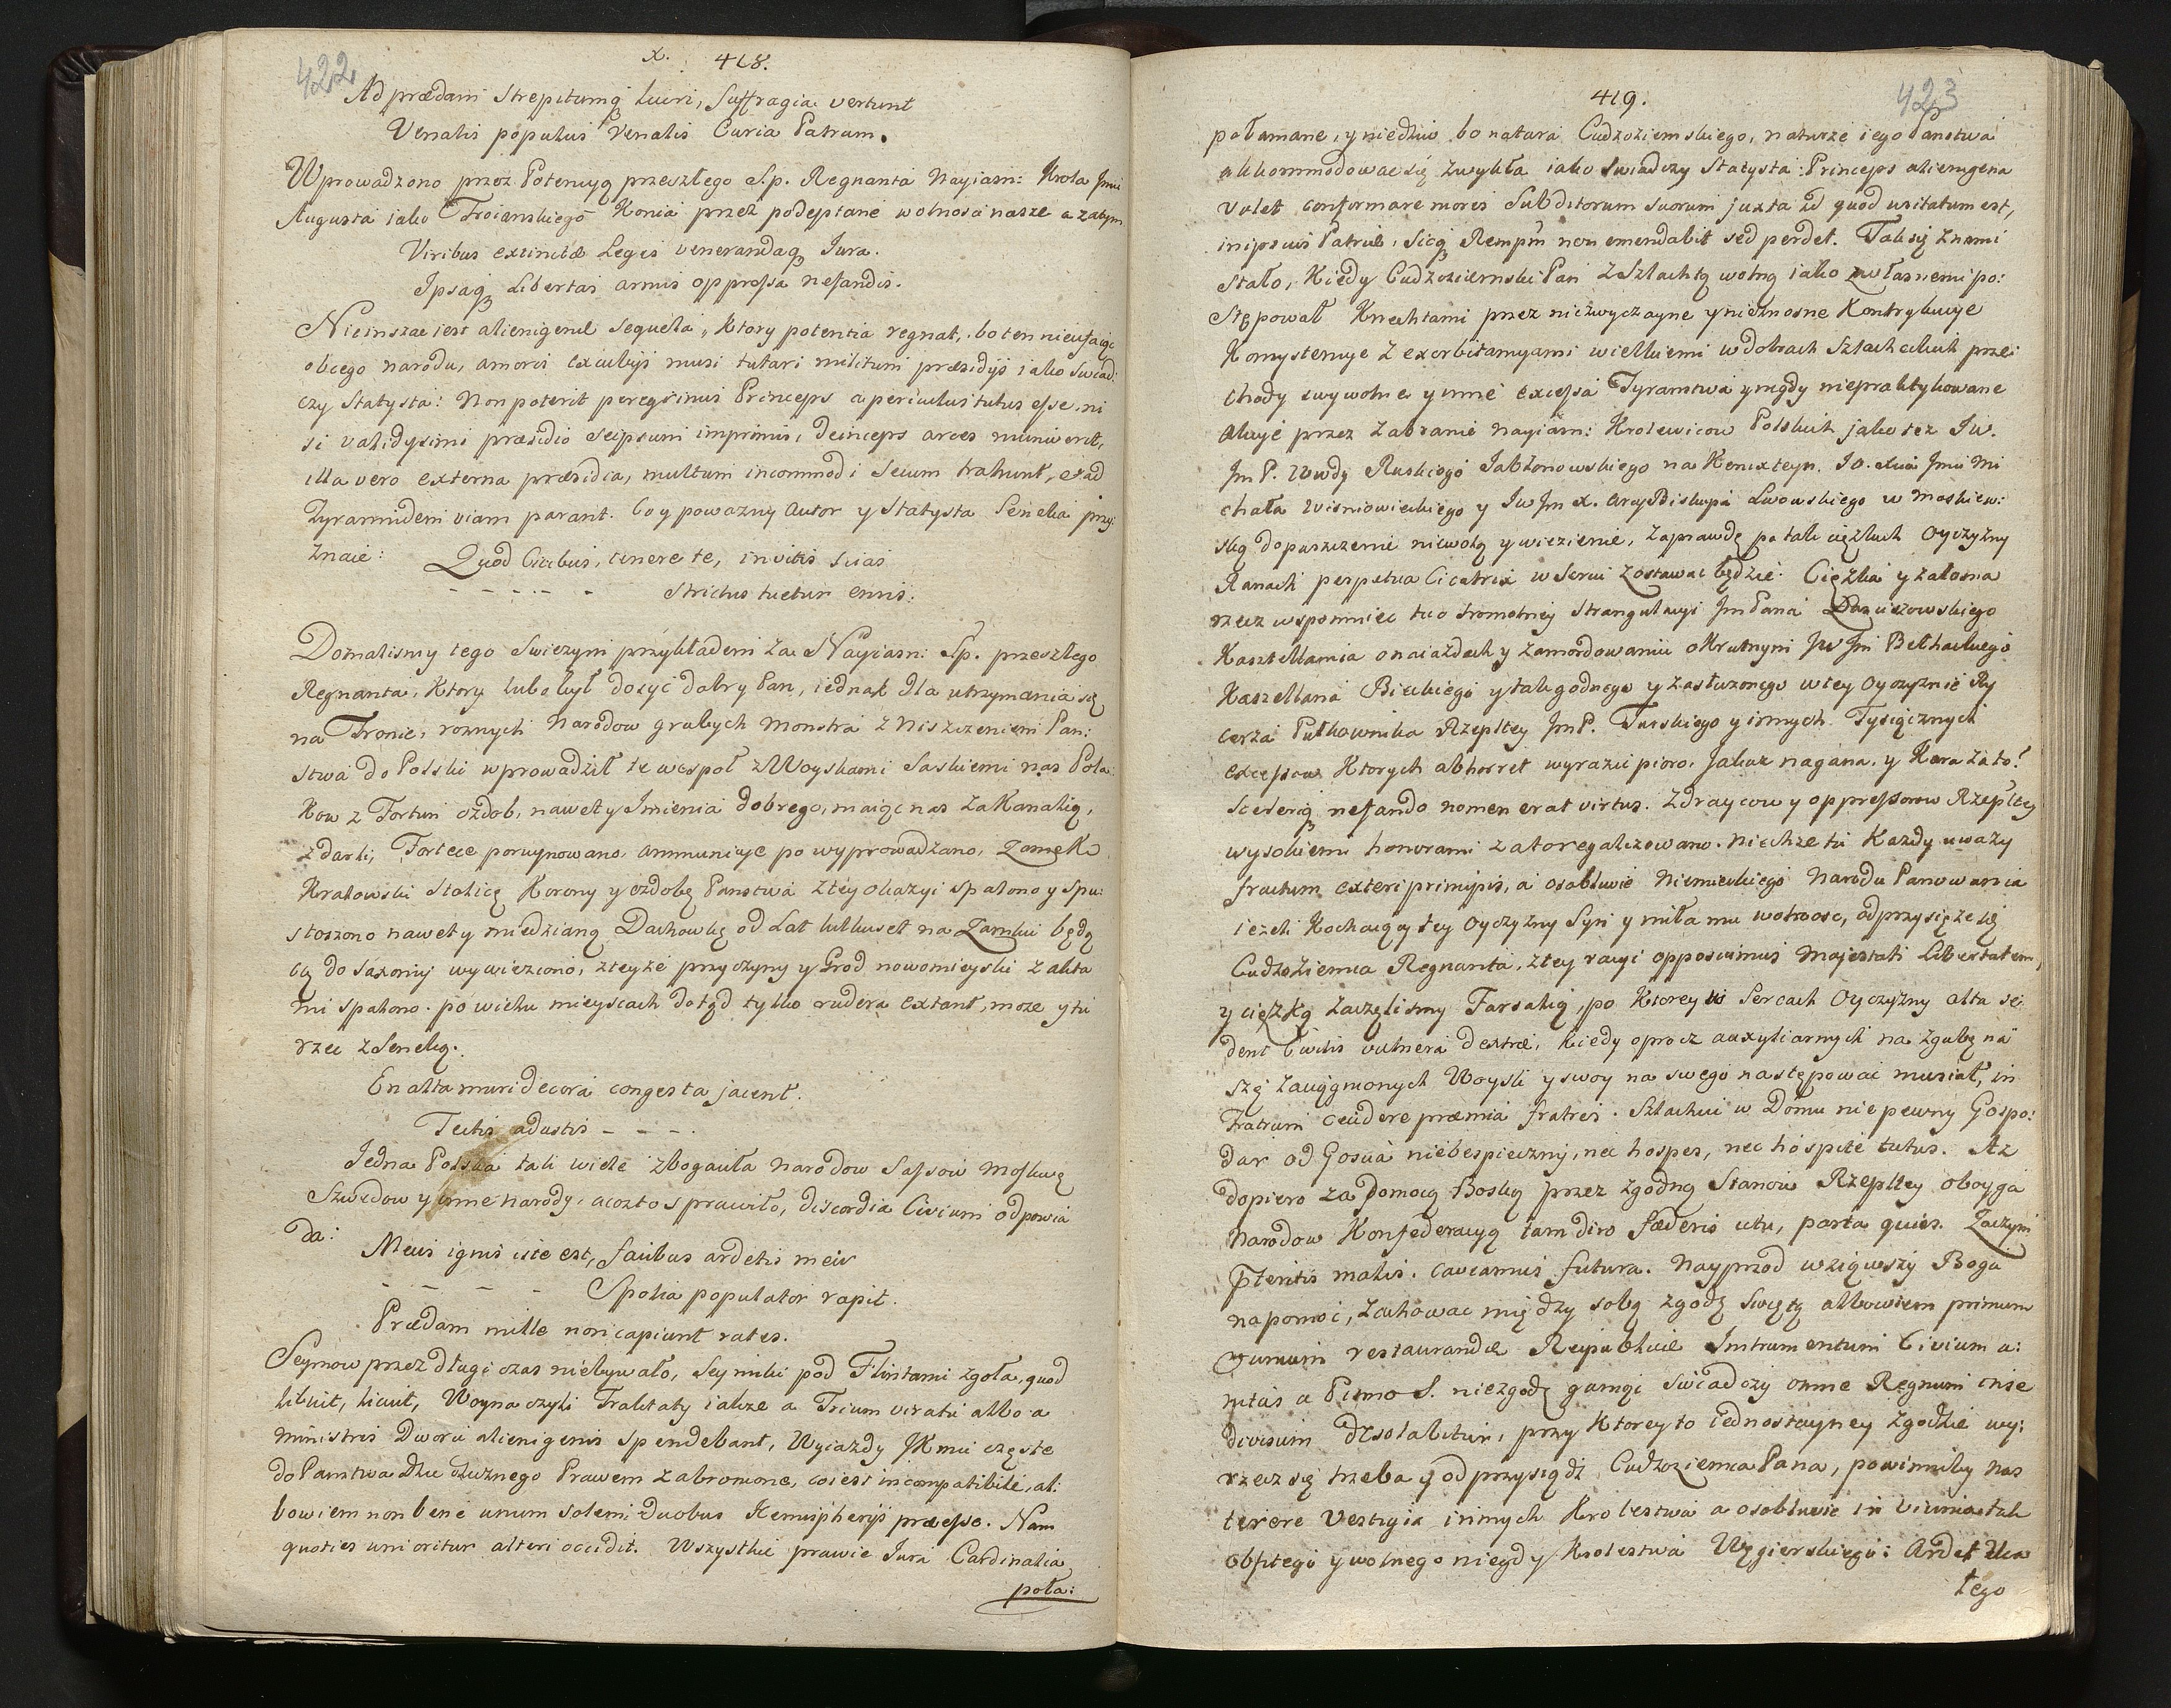 422
x. 418.
Ad prædam strepitumq₃ lucri, Suffragia vertunt
Venalis populus Venalis Curia Patrum.
Wprowadzono przez Potencyą przeszłego S.p. Regnanta Nayiasn: Krola Jmci
Augusta iako Troianskiego Konia przez podeptane wolnosci nasze a zatym
Viribus extinctæ Leges venerandaq₃ Iura.
Ipsaq₃ Libertas armis oppressa nefandis.
Nieinsza iest alienigenæ sequela, Ktory potentia regnat, bo ten nieufaiąc
obcego narodu, amoris excubijs musi tutari militum præsidijs iako swiad:
czy Statysta: Non poterit peregrinus Princeps a periculis tutus esse, ni
si validysimi præsidio seipsum imprimis, deinceps arces muniverit,
illa vero externa præsidia, multum incommodi secum trahunt, et ad
Tyrannidem viam parant. Co y powazny Autor y Statysta Seneka przy:
znaie: Quod Civibus, tenere te, invitis scias
- - - - - - Strictus tuetur ensis.
Doznalismy tego swiezym przykładem za Nayiasn: Sp. przeszłego
Regnanta, Ktory lubo był dosyc dobry Pan, iednak dla utrzymania się
na Tronie, roznych Narodow grubych monstra z Niszczeniem Pan:
stwa do Polski wprowadził te wespoł z Woyskami Saskiemi nas Pola:
kow z Fortun ozdob, nawet y Imienia dobrego, maiąc nas za Kanalią,
zdarli, Fortece porujnowano, ammunicye powyprowadzano, Zamek
Krakowski Stolicę Korony y ozdobę Panstwa z tey okazyi spalono y spu:
stoszono nawet y miedzianą Dachowkę od Lat kilkuset na Zamku będą
cą do Saxonij wywieziono, z teyze przyczyny y Grod nowomieyski z akta
mi spalono. po wielu mieyscach dotąd tylko rudera extant, moze y tu
rzec z Seneką.
En alta muri decora congesta jacent.
Tectis adustis - - - .
Jedna Polska tak wiele zbogaciła narodow Sassow Moskwę
Szwedow y inne narody, a coz to sprawiło, discordia Civium odpowia
da: Meus ignis iste est, facibus ardetis meis
- - - - Spolia populator rapit.
Prædam mille non capiunt rates.
Seymow przez długi czas niebywało, Seymiki pod Flintami zgoła, quod
libuit, licuit, Woyna czyli Traktaty iakze a Trium viratu albo a
ministris Dworu alienigenis spendebant, Wyiazdy JKmci częste
do Panstwa dziedzicznego Prawem zabronione, coiest incompatibile, al:
bowiem non bene unum solem duobus Hemispherijs præesse. Nam
quoties uni oritur alteri occidit. Wszystkie prawie Iura Cardinalia
poła:
419. 423
połamane, y niedziw bo natura Cudzoziemskiego, naturze iego Panstwa
akkommodowac się zwykła iako swiadczy Statysta: Princeps alienigena
volet conformare mores Subditorum suorum juxta id quod usitatum est,
in ipsius Patria, sicq₃ Rempm non emendabit sed perdet. Tak się z nami
stało, Kiedy Cudzoziemski Pan z Szlachtą wolną iako z własnemi po:
stępował Knechtami przez niezwyczayne y nieznosne Kontrybucye
Komystencye z exorbitancyami wielkiemi w dobrach Szlacheckich prze:
chody swywolne y inne excessa Tyranstwa y nigdy niepraktykowane
akcye przez zabranie nayiasn: Krolewicow Polskich jako tez Jw.
Jm P. Wwdy Ruskiego Jabłonowskiego na Kenixteyn. JO. Xcia Jmci Mi
chała Wisniowieckiego y Jw Jm X. Arcy Biskupa Lwowskiego w moskiew:
ską dopuszczenie niewolą y wiezienie, Zaprawdę po tak ciężkich Oyczyzny
Ranach perpetua Cicatrix w Sercu zostawac będzie. Cięzka y załosna
rzecz wspomniec tu o sromotney strangulacyi Jm Pana
Kasztellanica o naiazdach y zamordowaniu okrutnym Jw Jm
Kasztellana Bieckiego y tak godnego y zasłuzonego w tey oyczyznie Ry
cerza Pułkownika Rzepltey Jm P. Turskiego y innych Tysiącznych
excessow Ktorych abhorret wyrazic pioro. Jakaz nagana. y Kara za to?
Sceleriq₃ nefando nomen erat virtus. Zdraycow y oppressorow Rzepltey
wysokiemi honorami za to regalizowano. niechze tu Kazdy uwazy
fructum exteri principis, a osobliwie Niemieckiego Narodu Panowania
iezeli Kochaiący tey Oyczyzny Syn y miła mu wolnosc, odprzysięze się
Cudzoziemca Regnanta, z tey racyi opposuimus Majestati Libertatem,
y cięszką zaczęlismy Farsalią, po Ktorey w Sercach Oyczyzny alta se
dent Civilis vulnera dextræ, kiedy oprocz auxyliarnych na zgubę na
szę zaciągnionych Woysk y swoy na swego następowac musiał, in
Fratrum ceudere præmia fratres. Szlachcic w Domu niepewny Gospo:
dar od Goscia niebespieczny, nec hospes, nec hospite tutus. Az
dopiero za pomocą Boską przez zgodną Stanow Rzepltey oboyga
Narodow Konfederacyą tam diro fæderis ictu, parta quies. Zaczym
Pteritis malis, caveamus futura. Nayprzod wziąwszy Boga
na pomoc, zachowac między sobą zgodę swiętą albowiem primum
Summum restaurandæ Reipublicæ Instrumentum Civium a:
nitas a Pismo S. niezgodę ganiąc swiadczy omne Regnum in se
divisum desolabitur, przy Ktoreyto iednostayney zgodzie wy:
rzecz się trzeba y odprzysiądz Cudzoziemca Pana, powinniby nas
terrere Vestigia innych Krolestwa a osobliwie in vicinia tak
obfitego y wolnego niegdy Krolestwa Węgierskiego: Ardet
tego